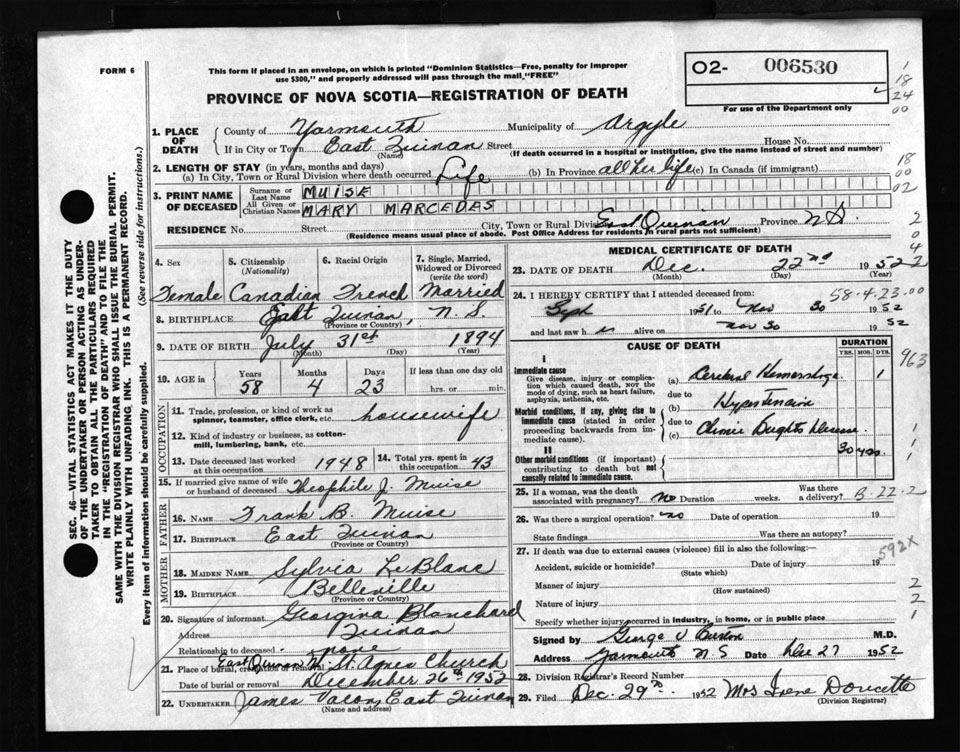 FORM 6
This form if placed in an envelope, on which is printed "Dominion Statistics—Free, penalty for improper
use $300," and properly addressed will pass through the mail "FREE"
O2- 006530
For use of the Department only
PROVINCE OF NOVA SCOTIA—REGISTRATION OF DEATH
1. PLACE OF DEATH
County of Yarmouth Municipality of Argyle
If in City or Town East Quinan Street House No.
(Name) (If death occurred in a hospital or institution, give the name instead of street and number)
2. LENGTH OF STAY (in years, months and days)
(a) In City, Town or Rural Division where death occurred Life (b) In Province all her life (c) In Canada (if immigrant)
3. PRINT NAME OF DECEASED
Surname or Last Name MUISE
All Given or Christian Names MARY MARCEDAS
RESIDENCE No. Street City, Town or Rural Division East Quinan Province N.S.
(Residence means usual place of abode. Post Office Address for residents in rural parts not sufficient)
4. Sex Female
5. Citizenship (Nationality) Canadian
6. Racial Origin French
7. Single, Married, Widowed or Divorced (write the word) Married
8. BIRTHPLACE East Quinan, N.S.
(Province or Country)
9. DATE OF BIRTH July 31st 1894
(Month) (Day) (Year)
10. AGE in Years 58 Months 4 Days 23 If less than one day old hrs. or min.
OCCUPATION
11. Trade, profession, or kind of work as spinner, teamster, office clerk, etc. housewife
12. Kind of industry or business, as cotton-mill, lumbering, bank, etc.
13. Date deceased last worked at this occupation 1948
14. Total yrs. spent in this occupation 43
15. If married give name of wife or husband of deceased Theophile J. Muise
FATHER
16. NAME Frank B. Muise
17. BIRTHPLACE East Quinan
(Province or Country)
MOTHER
18. MAIDEN NAME Sylvia LeBlanc
19. BIRTHPLACE Belleville
(Province or Country)
20. Signature of informant Georgina Blanchard
Address Quinan
Relationship to deceased none
21. Place of burial, cremation or removal East Quinan St. Agnes Church
Date of burial or removal December 26th 1952
22. UNDERTAKER James Vacon, East Quinan
(Name and address)
MEDICAL CERTIFICATE OF DEATH
23. DATE OF DEATH Dec. 22nd 1952
(Month) (Day) (Year)
24. I HEREBY CERTIFY that I attended deceased from:
Sept 1951 to Nov 30 1952
and last saw h er alive on Nov 30 1952
CAUSE OF DEATH
DURATION
YRS. MOS. DYS.
I
Immediate cause
Give disease, injury or complication which caused death, NOT the mode of dying, such as heart failure, asphyxia, asthenia, etc.
(a) Cerebral Hemorrhage 1
due to
(b) Hypertension
Morbid conditions, if any, giving rise to immediate cause (stated in order proceeding backwards from immediate cause).
due to
(c) Chronic Brights Disease
II
30 yrs.
Other morbid conditions (if important) contributing to death but not causally related to immediate cause.
25. If a woman, was the death associated with pregnancy? No Duration weeks. Was there a delivery?
26. Was there a surgical operation? no Date of operation 19
State findings Was there an autopsy?
27. If death was due to external causes (violence) fill in also the following:—
Accident, suicide or homicide? Date of injury 19
(State which)
Manner of injury
(How sustained)
Nature of injury
Specify whether injury occurred in industry, in home, or in public place
Signed by George V Burton M.D.
Address Yarmouth N S Date Dec 27 1952
28. Division Registrar's Record Number
29. Filed Dec. 29th 1952 Mrs Irene Doucette
(Division Registrar)
SEC. 46—VITAL STATISTICS ACT MAKES IT THE DUTY
OF THE UNDERTAKER OR PERSON ACTING AS UNDER-
TAKER TO OBTAIN ALL THE PARTICULARS REQUIRED
IN THE "REGISTRATION OF DEATH" AND TO FILE THE
SAME WITH THE DIVISION REGISTRAR WHO SHALL ISSUE THE BURIAL PERMIT.
WRITE PLAINLY WITH UNFADING INK. THIS IS A PERMANENT RECORD.
Every item of information should be carefully supplied. (See reverse side for instructions.)
1
18
24
00
18
00
02
2
0
4
2
58-4-23-00
963
1
1
B-22-2
592X
2
2
1